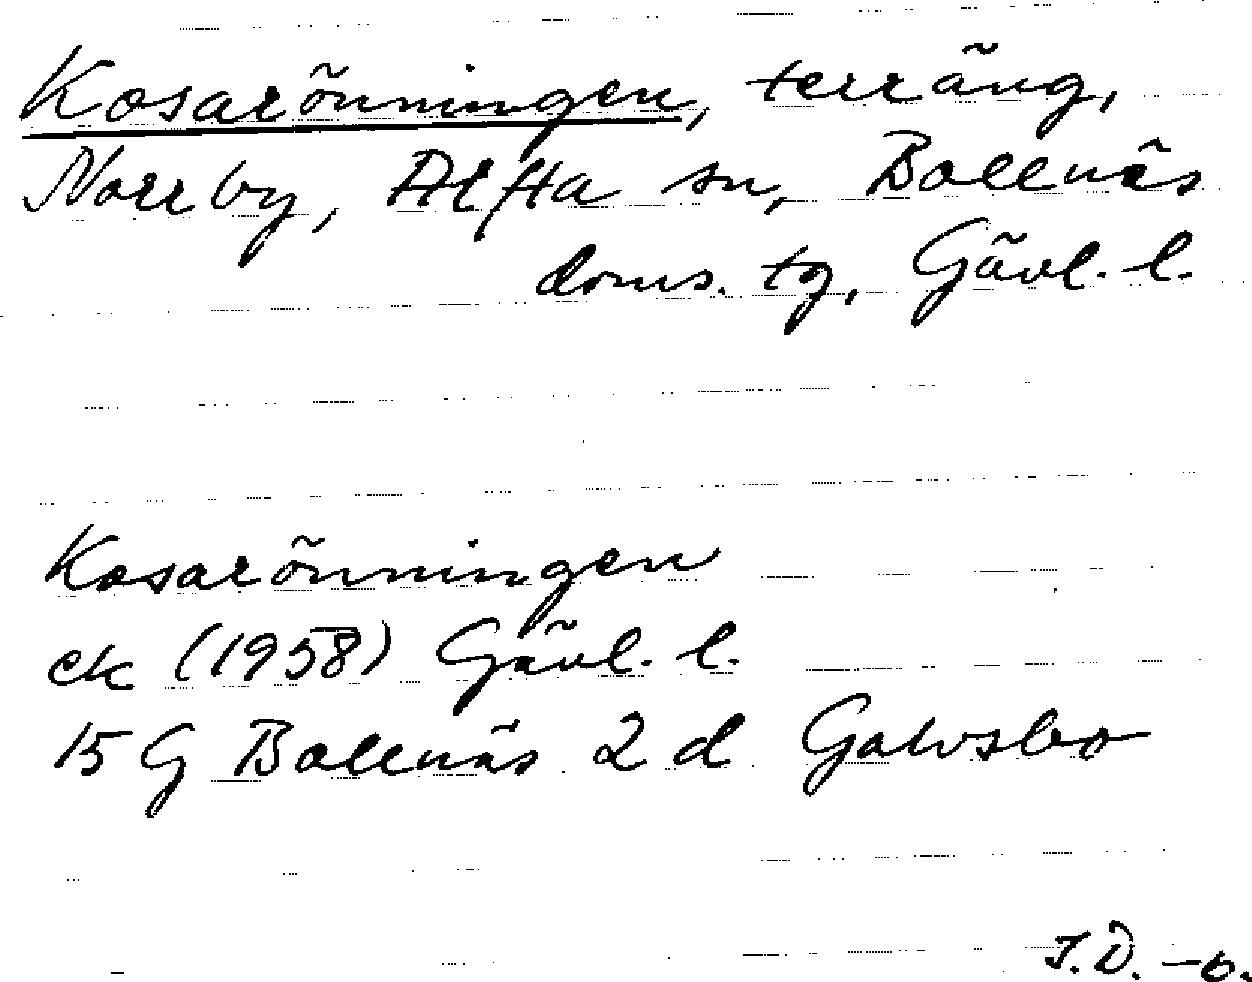 Kosarönningen, terräng,
Norrby, Alfta sn, Bollnäs
doms. tg, Gävl. l.
Kosarönningen
ek (1958) Gävl. l.
15 G Bollnäs 2 d Galvsbo